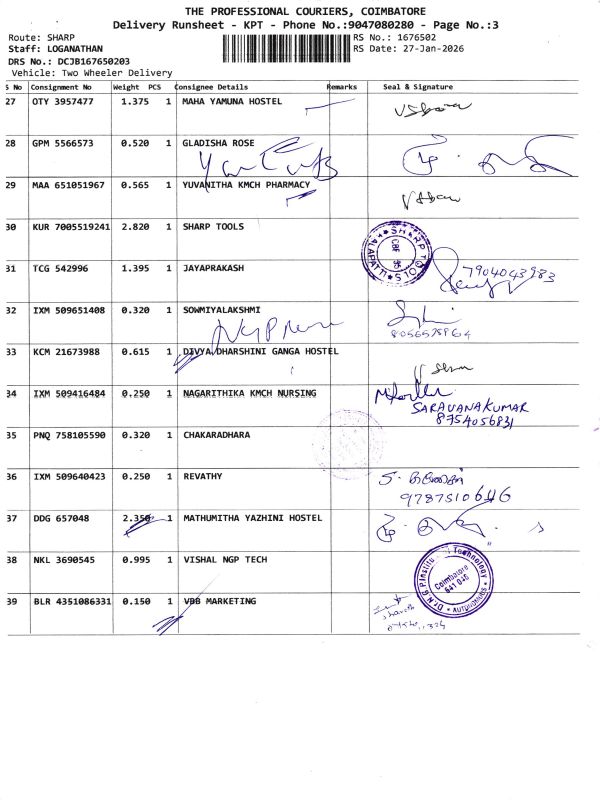 THE PROFESSIONAL COURIERS, COIMBATORE
Delivery Runsheet - KPT - Phone No.:9047080280 - Page No.:3
Route: SHARP
RS No.: 1676502
Staff: LOGANATHAN
RS Date: 27-Jan-2026
DRS No.: DCJB167650203
Vehicle: Two Wheeler Delivery
S No Consignment No Weight PCS Consignee Details Remarks Seal & Signature
27 OTY 3957477 1.375 1 MAHA YAMUNA HOSTEL
28 GPM 5566573 0.520 1 GLADISHA ROSE
29 MAA 651051967 0.565 1 YUVANITHA KMCH PHARMACY
30 KUR 7005519241 2.820 1 SHARP TOOLS
SHARP TOOLS
31 TCG 542996 1.395 1 JAYAPRAKASH
7904043983
32 IXM 509651408 0.320 1 SOWMIYALAKSHMI
33 KCM 21673988 0.615 1 DIVYA DHARSHINI GANGA HOSTEL
34 IXM 509416484 0.250 1 NAGARITHIKA KMCH NURSING
SARAVANAKUMAR
8754056831
35 PNQ 758105590 0.320 1 CHAKARADHARA
36 IXM 509640423 0.250 1 REVATHY
9787510646
37 DDG 657048 2.350 1 MATHUMITHA YAZHINI HOSTEL
38 NKL 3690545 0.995 1 VISHAL NGP TECH
Coimbatore
641 048
AUTONOMOUS
39 BLR 4351086331 0.150 1 VBB MARKETING